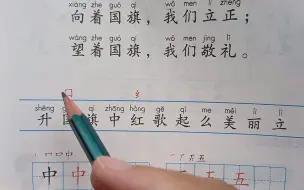 xiàng zhe guó qí wǒ men lì zhèng
向着国旗，我们立正；
wàng zhe guó qí wǒ men jìng lǐ
望着国旗，我们敬礼。
口 纟
shēng guó qí zhōng hóng gē qǐ me měi lì lì
升国旗中红歌起么美丽立
丨 口 口 中 一 丅 五 五
中 中 中 五 五 五